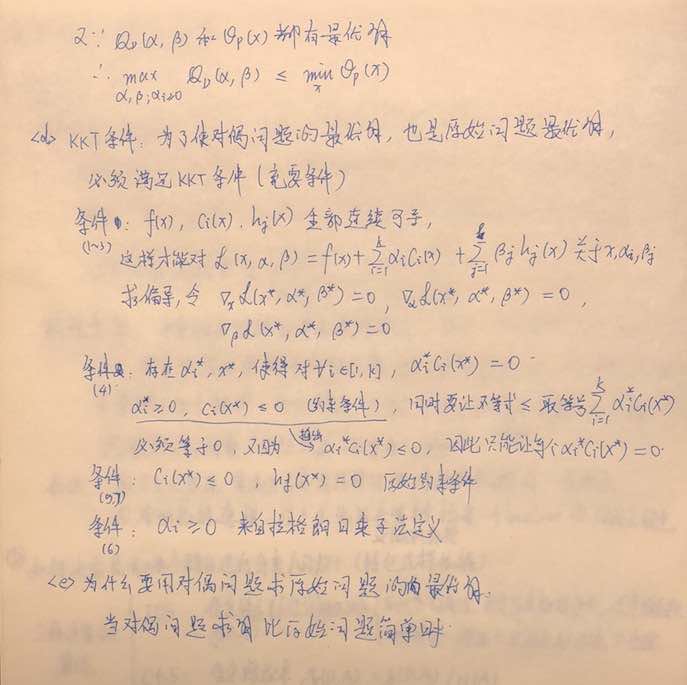 又∵ θ_D(α, β) 和 θ_P(x) 都有最优解
∴ max_{α,β;αi≥0} θ_D(α, β) ≤ min_x θ_P(x)
<d> KKT条件：为了使对偶问题的最优解，也是原始问题最优解，
必须满足KKT条件（充要条件）
条件(1~3)：f(x), Ci(x), hj(x) 全部连续可导，
这样才能对 L(x, α, β) = f(x) + Σ_{i=1}^{k} αiCi(x) + Σ_{j=1}^{l} βj hj(x) 关于x, αi, βj
求偏导，令 ∇xL(x*, α*, β*) = 0, ∇αL(x*, α*, β*) = 0,
∇βL(x*, α*, β*) = 0
条件(4)：存在αi*, x*, 使得对∀i∈[1, k], αi*Ci(x*) = 0.
αi* ≥ 0, Ci(x*) ≤ 0 (约束条件), 同时要让不等式 ≤ 取等号 Σ_{i=1}^{k} αi*Ci(x*)
必须等于0, 又因为 推出 αi*Ci(x*) ≤ 0, 因此只能让每个αi*Ci(x*) = 0.
条件：Ci(x*) ≤ 0, hj(x*) = 0 原始约束条件
(5,7)
条件(6)：αi ≥ 0 来自拉格朗日乘子法定义
<e> 为什么要用对偶问题求原始问题的最优解.
当对偶问题求解比原始问题简单时.